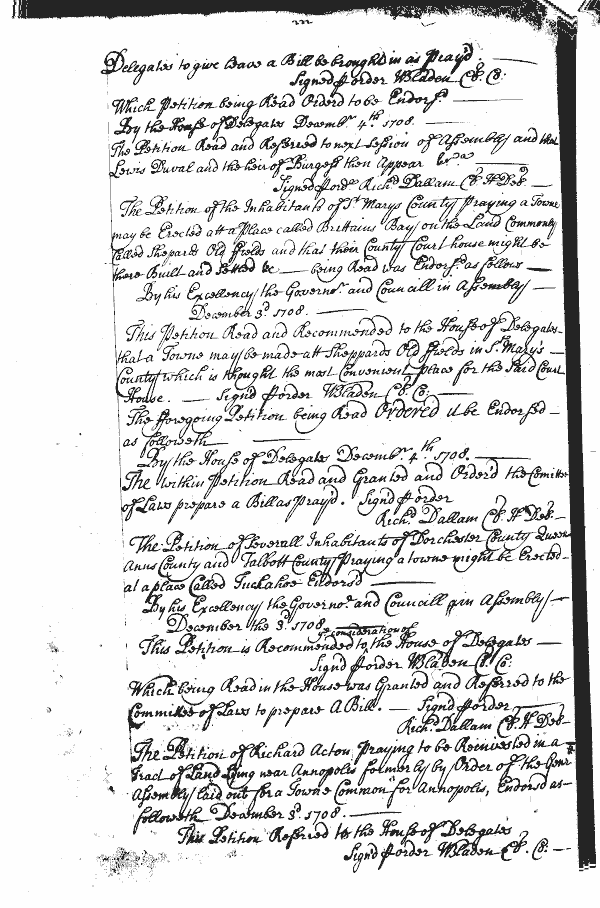 Delegates to give leave a Bill be brought in as Pray'd
Signed p order W Bladen Cl. Co:
Which Petition being Read Orderd to be Endorsd.
By the House of Delegates Decembr. 4th. 1708.
The Petition Read and Referred to next Session of Assembly and that
Lewis Duval and the heir of Burgess then Appear &ca
Signed p ordr. Richd. Dallam Cl. H. Del.
The Petition of the Inhabitants of St. Marys County praying a Towne
may be Erected att a place called Brittains Bay on the Land Commonly
Called Shepards Old ffields and that their County Court house might be
there Built and Settled &c being Read was Endorsd. as follows
By his Excellency the Governor. and Councill in Assembly
December 3d. 1708.
This Petition Read and Recommended to the House of Delegates
that a Towne may be made att Sheppards Old ffields in St. Mary's
County which is thought the most Convenient place for the Said Court
House. Signd p order W Bladen Cl. Co:
The fforegoing Petition being Read Ordered it be Endorsed
as ffolloweth
By the House of Delegates Decembr. 4th. 1708.
The within Petition Read and Granted and Order'd the Comittee
of Laws prepare a Bill as Pray'd. Signd p order
Richd. Dallam Cl. H. Del.
The Petition of Severall Inhabitants of Dorchester County Queen
Anns County and Talbott County Praying a towne might be Erected
at a place Called Tuckahoe Endorsd
By his Excellency the Governor. and Councill in Assembly
December the 3d. 1708.
ye consideration of
This Petition is Recommended to the House of Delegates
Signd p order W Bladen Cl. Co:
Which being Read in the House was Granted and Referred to the
Committee of Laws to prepare A Bill. Signd p order
Richd. Dallam Cl. H. Del.
The Petition of Richard Acton Praying to be Reinvested in a
Tract of Land Lying near Annopolis formerly by Order of the Genr
Assembly laid out for a Towne Common for Annopolis, Endorsd as
followeth December 3d. 1708.
This Petition Referred to the House of Delegates
Signd p order W Bladen Cl. Co: